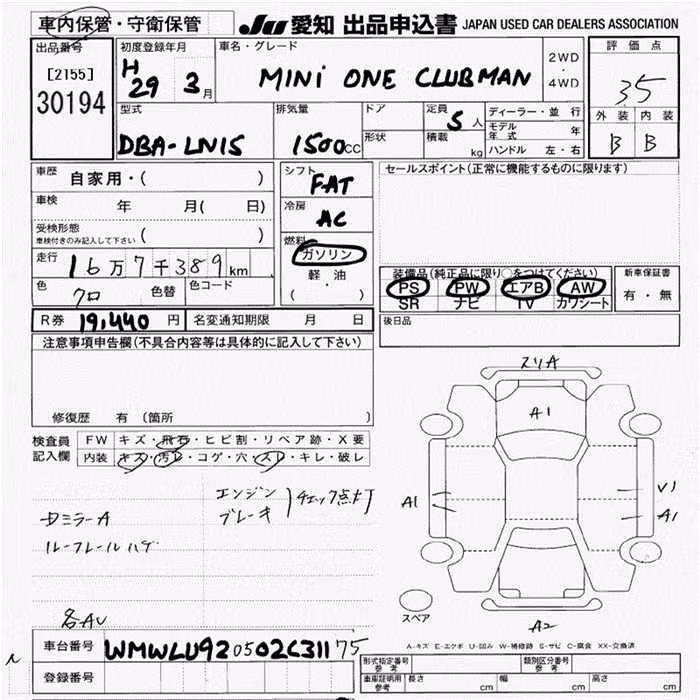 車内保管・守衛保管 JU 愛知 出品申込書 JAPAN USED CAR DEALERS ASSOCIATION
出品番号 [2155] 30194
初度登録年月 H29 3月
車名・グレード MINI ONE CLUBMAN 2WD・4WD
評価点 35
外装 B 内装 B
型式 DBA-LN15
排気量 1500cc
ドア
形状
定員 5人
積載 kg
ディーラー・並行
モデル年式 年
ハンドル 左・右
車歴 自家用・( )
車検 年 月( 日)
受検形態 ( )
車検付きのみ記入して下さい
走行 16万7千389km
色 クロ 色替 色コード
シフト FAT
冷房 AC
燃料 ガソリン・軽油 ( )
セールスポイント(正常に機能するものに限ります)
装備品(純正品に限り○をつけてください)
PS PW エアB AW
SR ナビ TV カワシート
新車保証書 有・無
R券 19,440円 名変通知期限 月 日
後日品
注意事項申告欄(不具合内容等は具体的に記入して下さい)
修復歴 有 (箇所 )
検査員記入欄
FW キズ・飛石・ヒビ割・リペア跡・X要
内装 キズ・汚レ・コゲ・穴・スレ・キレ・破レ
エンジン
ブレーキ チェック点灯
ミラーA
ルーフレールハゲ
各AU
スリA
A1
A1
V1
A1
A2
スペア
A-キズ E-エクボ U-凹み W-補修跡 S-サビ C-腐食 XX-交換済
車台番号 WMWLU920502C31175
登録番号
形式指定番号 参考
類別区分番号 参考
車庫証明用 参考 長さ cm 幅 cm 高さ cm